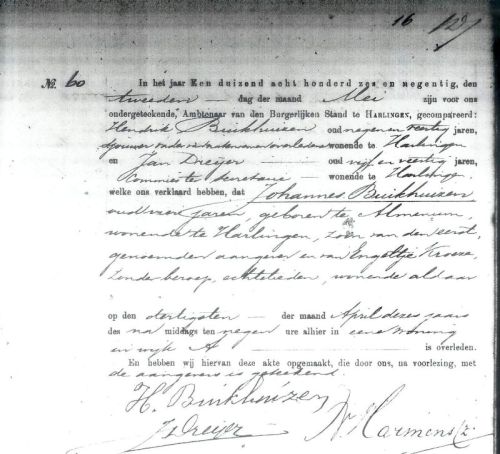 16
No. 60
In het jaar Een duizend acht honderd zes en negentig, den
tweeden dag der maand Mei zijn voor ons
ondergeteekende, Ambtenaar van den Burgerlijken Stand te HARLINGEN, gecompareerd:
Hendrik Buikhuizen oud negen en veertig jaren,
vader van den overledene wonende te Harlingen
en Jan Dreijer oud vijf en veertig jaren,
Commies ter secretarie wonende te Harlingen
welke ons verklaard hebben, dat Johannes Buikhuizen
oud vier jaren, geboren te Almenum,
wonende te Harlingen, zoon van den eerst-
genoemden aangever en van Engeltje Kroeze
zonder beroep, echtelieden, wonende aldaar
op den dertigsten der maand April dezes jaars
des na middags ten negen ure alhier in eene woning
in wijk A is overleden.
En hebben wij hiervan deze akte opgemaakt, die door ons, na voorlezing, met
de aangevers is geteekend
H. Buikhuizen
J. Dreijer
Harmens